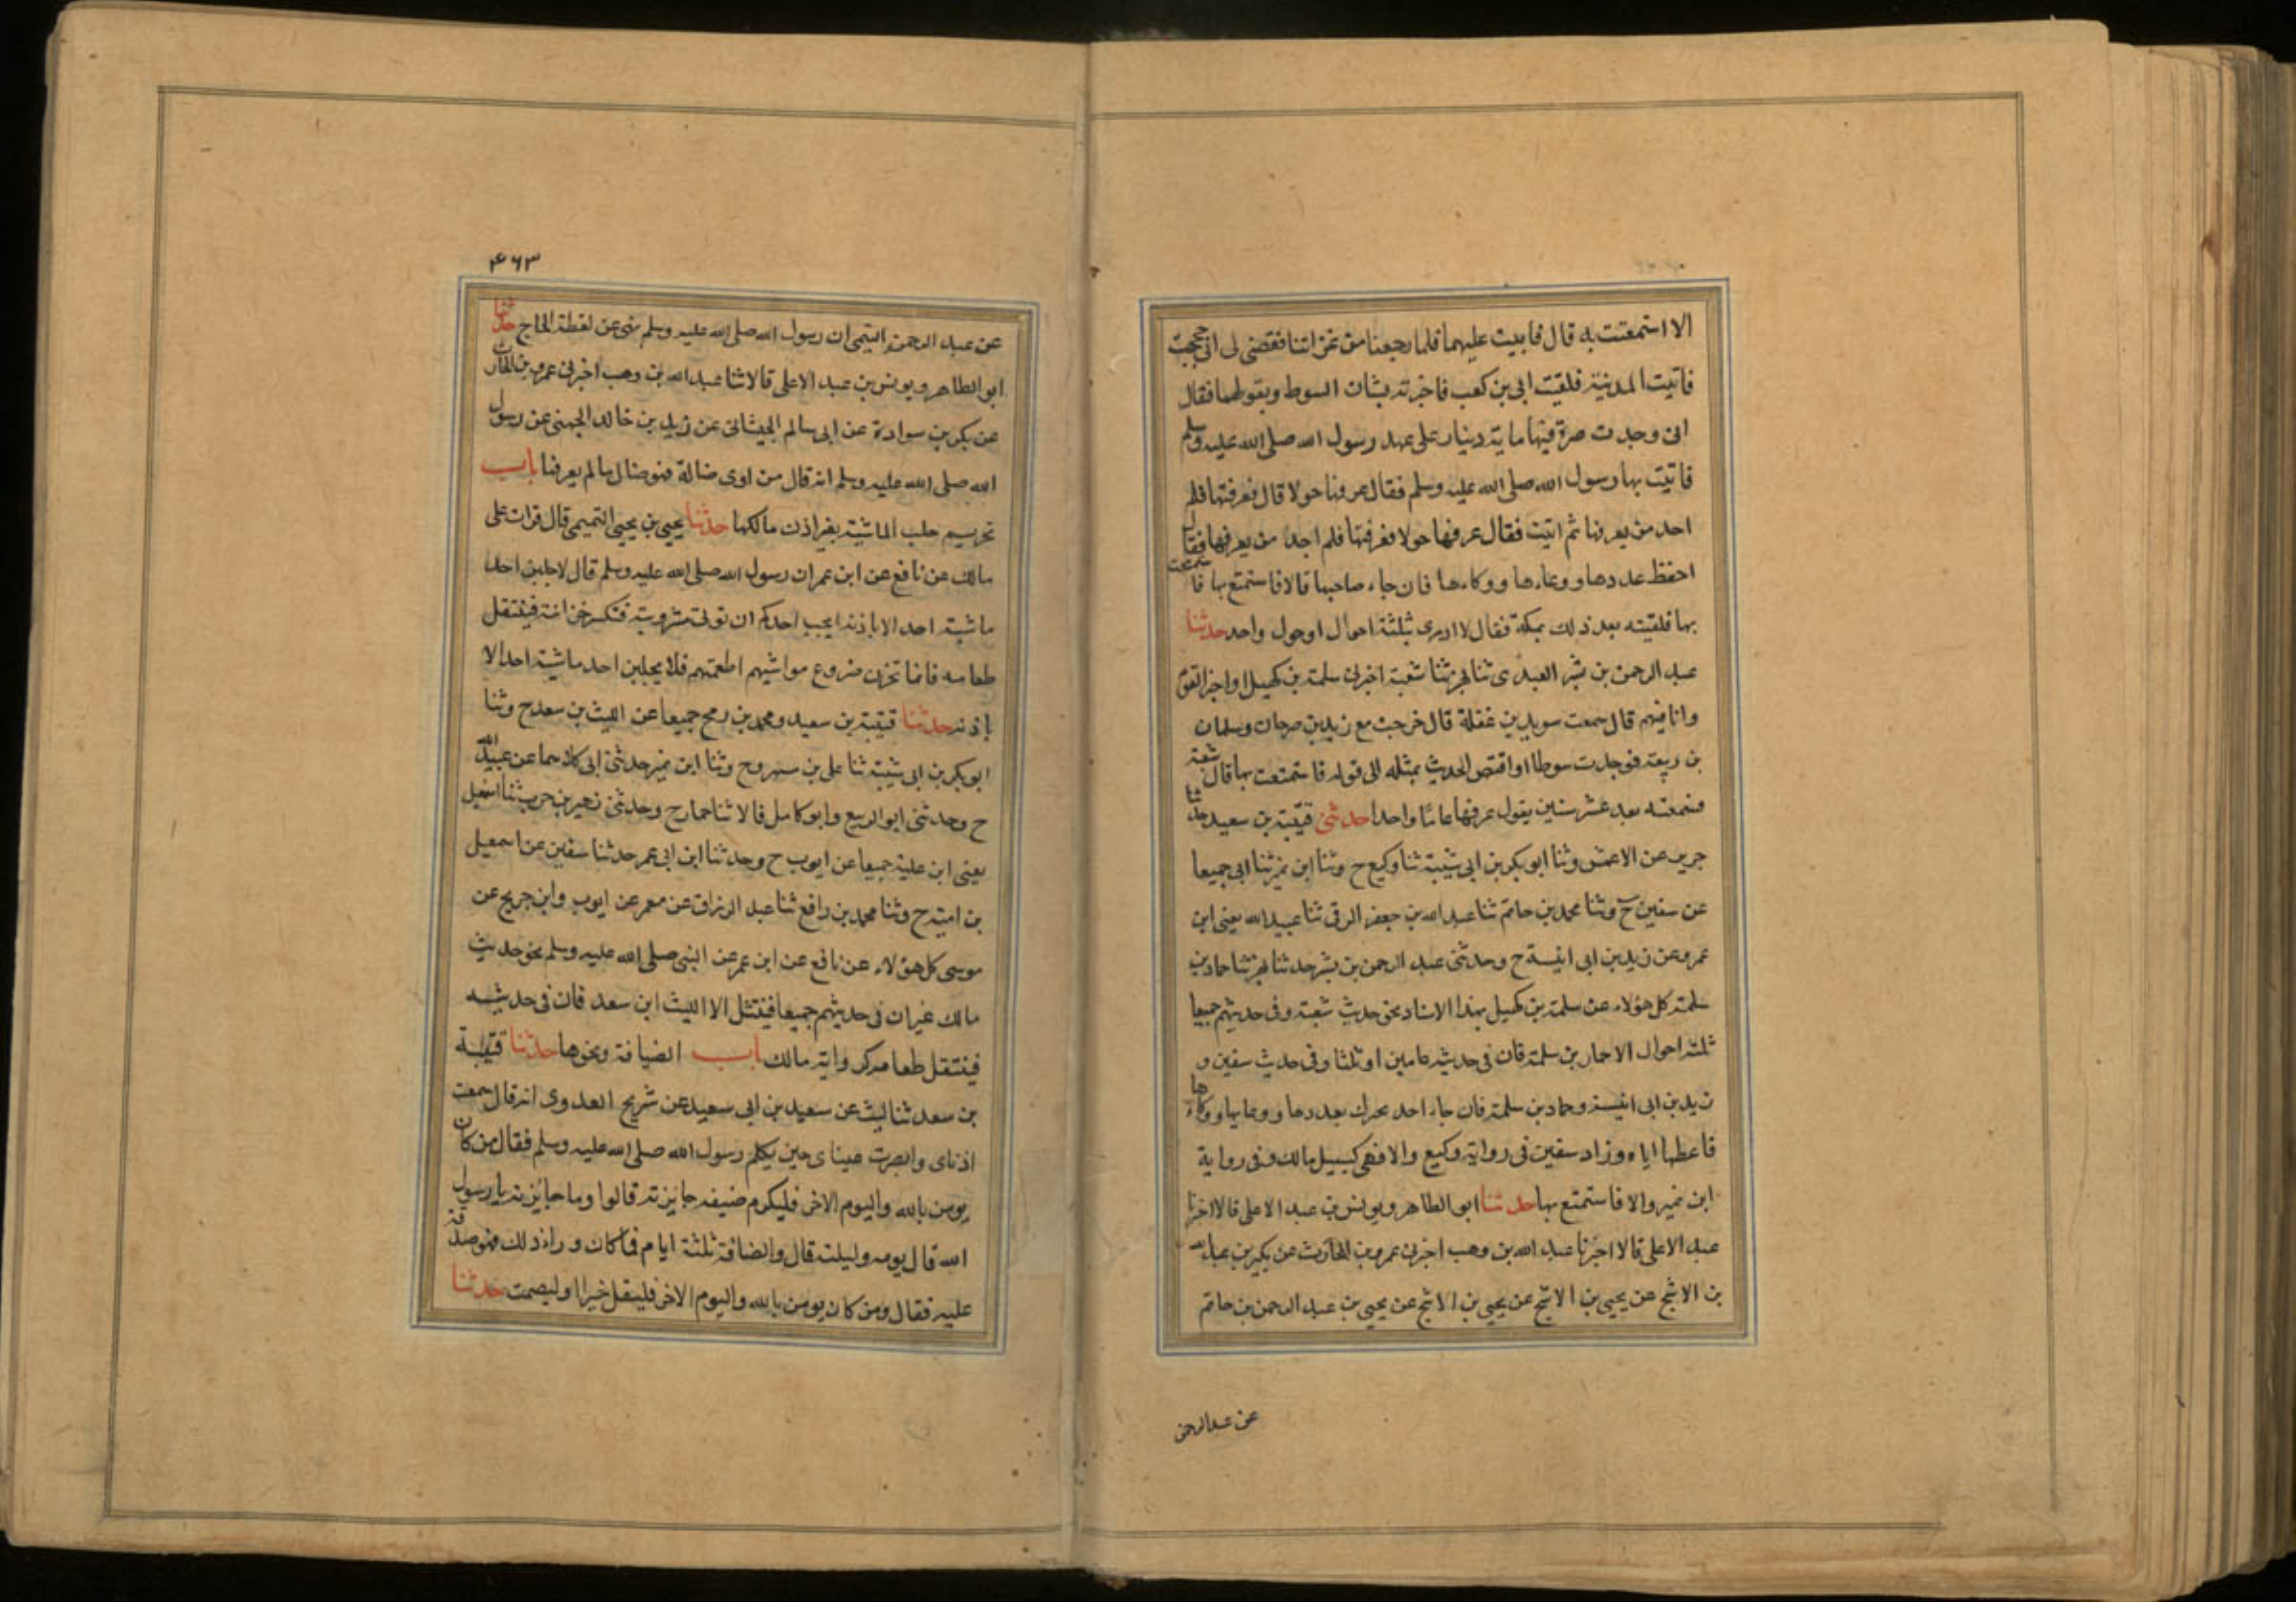 الا استمتعت به قال فابيت عليهما فلما رجعنا من غزاتنا فقضى لى انى حججت
فاتيت المدينة فلقيت ابى بن كعب فاخبرته بشان السوط وبقولهما فقال
انى وجدت صرة فيها ماية دينار على عهد رسول الله صلى الله عليه وسلم
فاتيت بها رسول الله صلى الله عليه وسلم فقال عرفها حولا قال فعرفتها فلم
احد من يعرفها ثم اتيت فقال عرفها حولا فعرفتها فلم اجد من يعرفها فقال
احفظ عددها ووعاءها ووكاءها فان جاء صاحبها قالا فاستمتع بها فاستمتعت
بها فلقيته بعد ذلك بمكة فقال لا ادرى بثلثة احوال او حول واحد حدثنا
عبد الرحمن بن بشر العبدى ثنا بهز ثنا شعبة اخبرنى سلمة بن كهيل او اخبر القوم
وانا فيهم قال سمعت سويد بن غفلة قال خرجت مع زيد بن صوحان وسلمان
بن ربيعة فوجدت سوطا او اقتص الحديث بمثله الى قوله فاستمتعت بها قال شعبة
فسمعته بعد عشر سنين يقول عرفها عامًا واحدا حدثنى قتيبة بن سعيد حدثنا
جرير عن الاعمش وثنا ابو بكر بن ابى شيبة ثنا وكيع ح وثنا ابن نمير ثنا ابى جميعا
عن سفين ح وثنا محمد بن حاتم ثنا عبد الله بن جعفر الرقى ثنا عبيد الله يعنى ابن
عمرو عن زيد بن ابى انيسة ح وحدثنى عبد الرحمن بن بشر حدثنا بهز ثنا حماد بن
سلمة كل هؤلاء عن سلمة بن كهيل بهذا الاسناد نحو حديث شعبة وفى حديثهم جميعا
ثلثة احوال الا حمار بن سلمة فان فى حديثه عامين او ثلثا وفى حديث سفين و
زيد بن ابى انيسة وحماد بن سلمة فان جاء احد يخبرك بعددها ووعايها ووكاءها
فاعطها اياه وزاد سفين فى رواية وكيع والا فهى كسبيل مالك وفى رواية
ابن نمير والا فاستمتع بها حدثنا ابو الطاهر ويونس بن عبد الاعلى قالا اخبرنا
عبد الاعلى قالا اخبرنا عبد الله بن وهب اخبرنى عمرو بن الحارث عن بكير بن عبد الله
بن الاشج عن يحيى بن الاشج عن يحيى بن الاشج عن يحيى بن عبد الرحمن بن حاتم
عن عبد الرحمن
۴۶۳
عن عبد الرحمن التيمى ان رسول الله صلى الله عليه وسلم نهى عن لقطة الحاج حدثنا
ابو الطاهر ويونس بن عبد الاعلى قالا ثنا عبد الله بن وهب اخبرنى عمرو بن الحارث
عن بكر بن سوادة عن ابى سالم الجيشانى عن زيد بن خالد الجهنى عن رسول
الله صلى الله عليه وسلم انه قال من اوى ضالة فهو ضال ما لم يعرفها باب
تحريم حلب الماشية بغير اذن مالكها حدثنا يحيى بن يحيى التميمى قال قرات على
مالك عن نافع عن ابن عمر ان رسول الله صلى الله عليه وسلم قال لا يحلبن احد
ماشية احد الا باذنه ايحب احدكم ان توتى مشربته فتكسر خزانته فينتقل
طعامه فانما تخزن ضروع مواشيهم اطعمتهم فلا يحلبن احد ماشية احد الا
باذنه حدثنا قتيبة بن سعيد ومحمد بن رمح جميعا عن الليث بن سعد ح وثنا
ابو بكر بن ابى شيبة ثنا على بن مسهر ح وثنا ابن نمير حدثنى ابى كلاهما عن عبيد الله
ح وحدثنى ابو الربيع وابو كامل قالا ثنا حماد ح وحدثنى زهير بن حرب ثنا اسمعيل
يعنى ابن علية جميعا عن ايوب ح وحدثنا ابن ابى عمر حدثنا سفين عن اسمعيل
بن امية ح وثنا محمد بن رافع ثنا عبد الرزاق عن معمر عن ايوب وابن جريج عن
موسى كل هؤلاء عن نافع عن ابن عمر عن النبى صلى الله عليه وسلم نحو حديث
مالك غير ان فى حديثهم جميعا فينتثل الا الليث ابن سعد فان فى حديثه
فينتقل طعامه كرواية مالك باب الضيافة ونحوها حدثنا قتيبة
بن سعد ثنا ليث عن سعيد بن ابى سعيد عن شريح العدوى انه قال سمعت
اذناى وابصرت عيناى حين يكلم رسول الله صلى الله عليه وسلم فقال من كان
يومن بالله واليوم الاخر فليكرم ضيفه جايزته قالوا وما جايزته يا رسول
الله قال يومه وليلته قال والضافة ثلثة ايام فما كان وراء ذلك فهو صدقة
عليه فقال ومن كان يومن بالله واليوم الاخر فليقل خيرا او ليصمت حدثنا